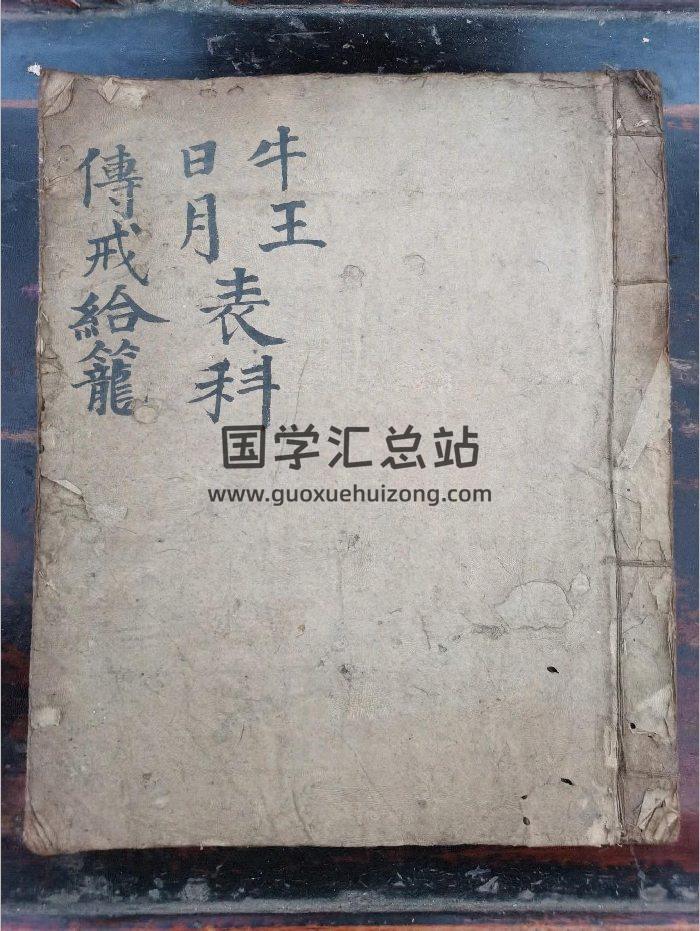 牛王
日月
表科
傳戒給籠
国学汇总站
www.guoxuehuizong.com